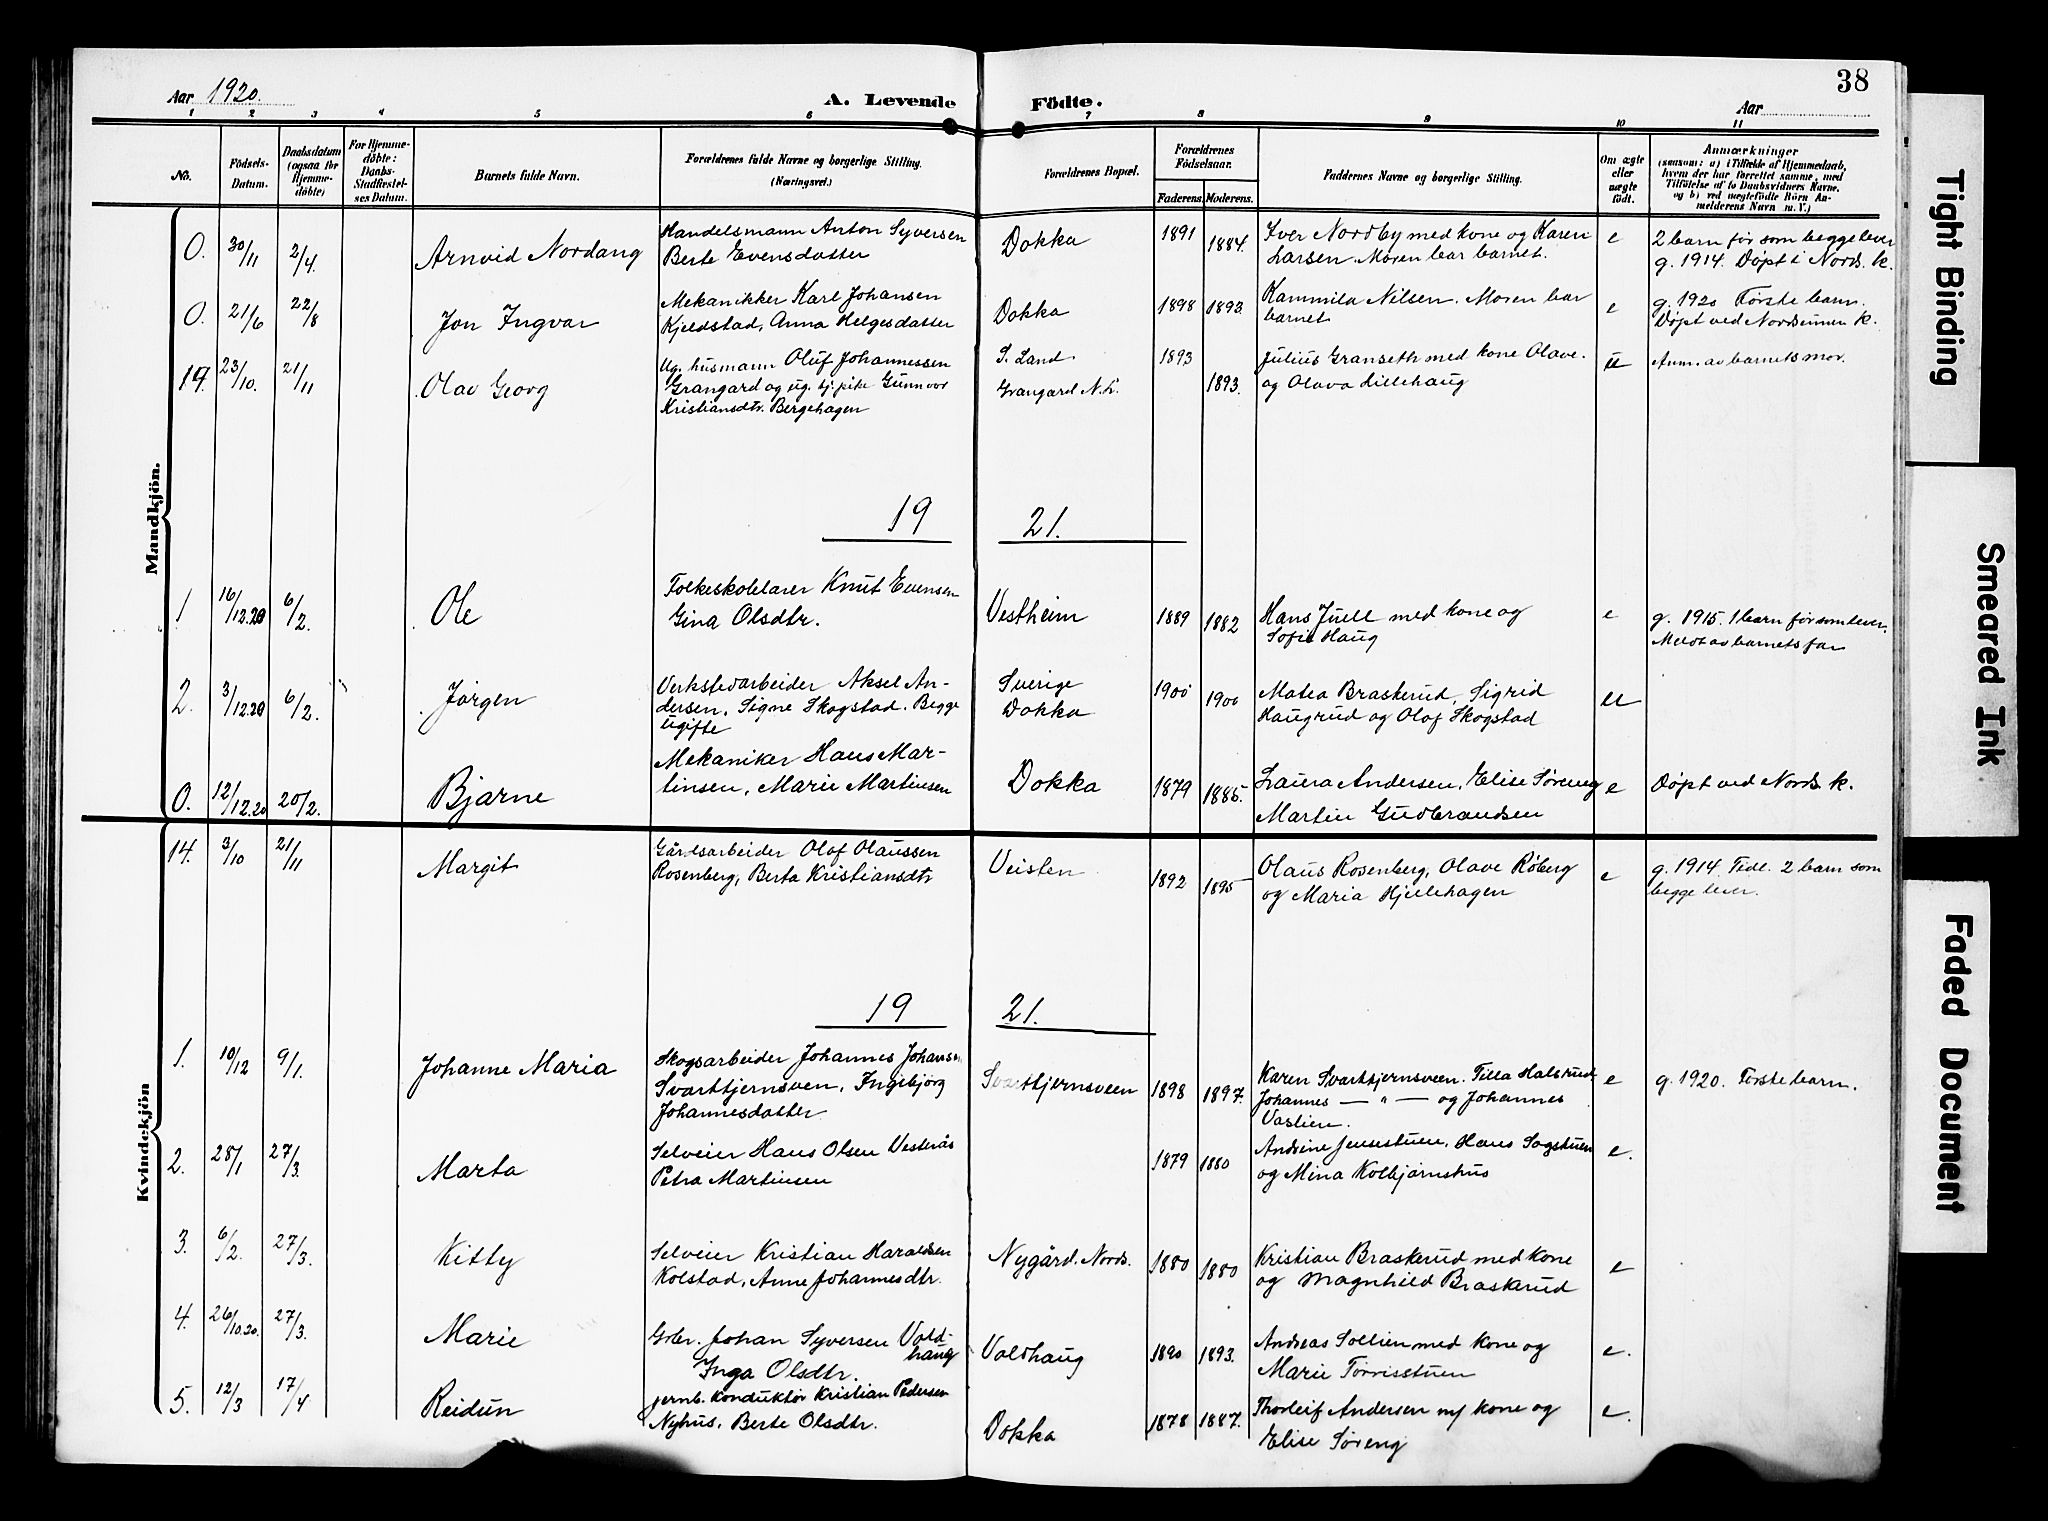 38
Aar 1920.
A. Levende Födte.
Aar
1 2 3 4 5 6 7 8 9 10 11
No.
Födsels-Datum.
Daabsdatum (ogsaa for Hjemme-döbte)
For Hjemme-döbte: Daabs-Stadfæstel-ses Datum.
Barnets fulde Navn.
Forældrenes fulde Navne og borgerlige Stilling. (Næringsvei.)
Forældrenes Bopæl.
Forældrenes Födselsaar.
Faderens. Moderens.
Faddernes Navne og borgerlige Stilling.
Om ægte eller uægte födt.
Anmærkninger
(saasom: a) i Tilfælde af Hjemmedaab,
hvem der har forrettet samme, med
Tilföielse af to Daabsvidners Navne,
og b) ved uægtefödte Börn An-
melderens Navn m. V.)
Mandkjön.
0. 30/11 2/4. Arnvid Nordang
Handelsmann Anton Syversen
Berte Evensdatter
Dokka 1891 1884.
Iver Nordby med kone og Karen
Larsen. Moren bar barnet.
e
2 barn før som begge lever
g. 1914. Døpt i Nords. k.
0. 21/6 22/8 Jon Ingvar
Mekanikker Karl Johansen
Kjeldstad, Anna Helgesdatter
Dokka 1898 1893.
Kammila Nilsen. Moren bar
barnet
e
g. 1920 Første barn.
Døpt ved Nordsinnen k.
19. 23/10. 21/11 Olav Georg
Ug. husmann Oluf Johannessen
Grangard og ug. tj. pike Gunnvor
Kristiansdtr. Bergehagen
S. Land
Grangard N. L.
1893 1893.
Julius Granseth med kone Olave.
og Olava Lillehaug
u
Anm. av barnets mor.
19 21.
1 16/12.20 6/2. Ole
Folkeskolelærer Knut Evensen
Gina Olsdtr.
Vestheim 1889 1882
Hans Juell med kone og
Sofie Haug
e
g. 1915. 1 barn før som lever.
Meldt av barnets far
2. 3/12.20 6/2. Jørgen
Verkstedarbeider Aksel An-
dersen, Signe Skogstad. Begge
ugifte
Sverige
Dokka
1900 1900
Matea Braskerud, Sigrid
Haugrud og Olaf Skogstad
u
0. 12/12.20 20/2. Bjarne
Mekaniker Hans Mar-
tinsen, Marie Martinsen
Dokka 1879 1885.
Laura Andersen, Elise Søreng
Martin Gudbrandsen
e
Døpt ved Nords k.
Kvindekjön
14. 3/10 21/11 Margit
Gårdsarbeider Olaf Olaussen
Rosenberg, Berta Kristiansdtr
Veisten 1892 1895
Olaus Rosenberg, Olave Røberg
og Maria Hjellehagen
e
g. 1914 Tidl. 2 barn som
begge lever.
19 21.
1. 10/12 9/1. Johanne Maria
Skogsarbeider Johannes Johansen
Svarttjernsveen, Ingebjørg
Johannesdatter
Svarttjernsveen 1898 1897.
Karen Svarttjernsveen. Tilla Halsrud
Johannes — " — og Johannes
Vaslien.
e
g. 1920. Første barn.
2. 28/1 27/3. Marta
Selveier Hans Olsen Vesterås
Petra Martinsen
1879 1880
Andrine Jensestuen, Hans Sagstuen
og Mina Kolbjørnshus
e.
3. 6/2. 27/3. Kitty
Selveier Kristian Haraldsen
Kolstad, Anne Johannesdtr.
Nygård. Nords. 1880 1880
Kristian Braskerud med kone
og Magnhild Braskerud
e
4. 26/10.20. 27/3. Marie
Grbr. Johan Syversen Vold-
haug
Inga Olsdtr.
Voldhaug 1890 1893.
Andreas Sollien med kone og
Marie Tørrisstuen
e.
5. 12/3 17/4 Reidun
jernb. konduktør Kristian Pedersen
Nyhus, Berte Olsdtr.
Dokka 1878 1887.
Thorleif Andersen m/ kone og
Elise Søreng
e.
Tight Binding
Smeared Ink
Faded Document